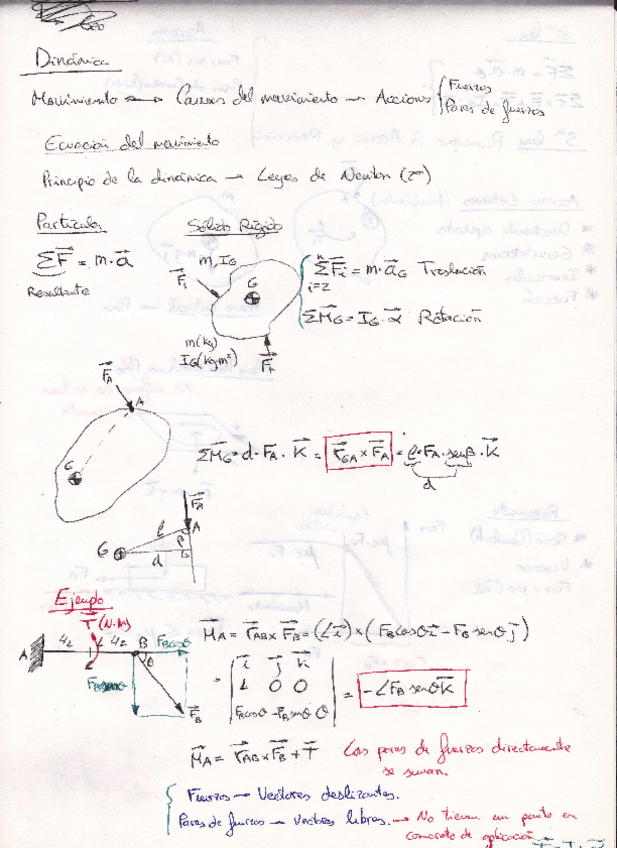 Dinámica
Movimiento ↔ Causas del movimiento → Acciones { Fuerzas
Pares de fuerzas
Ecuación del movimiento
Principio de la dinámica → Leyes de Newton (2ª)
Partícula
Sólido Rígido
ΣF⃗ = m·a⃗
Resultante
m, I_G
F⃗i
G
m(kg)
I_G(kg·m²)
Σ F⃗i = m·a⃗_G Traslación
i=2
ΣM⃗_G = I_G·α⃗ Rotación
F⃗_A
A
G
ΣM⃗_G = d·F_A·K⃗ = r⃗_GA × F⃗_A = l·F_A·senβ·K⃗
d
F⃗_A
A
l
β
G
d
Ejemplo
T⃗ (N·m)
A L/2 L/2 B F_B cosθ
θ
F⃗_B
M⃗_A = r⃗_AB × F⃗_B = (L i⃗) × (F_B cosθ i⃗ - F_B senθ j⃗)
= | i⃗ j⃗ K⃗ |
| L 0 0 |
| F_B cosθ -F_B senθ 0 |
= -L F_B senθ K⃗
M⃗_A = r⃗_AB × F⃗_B + T⃗ Los pares de fuerzas directamente
se suman.
Fuerzas → Vectores deslizantes.
Pares de fuerzas → vectores libres. → No tienen un punto en
concreto de aplicación